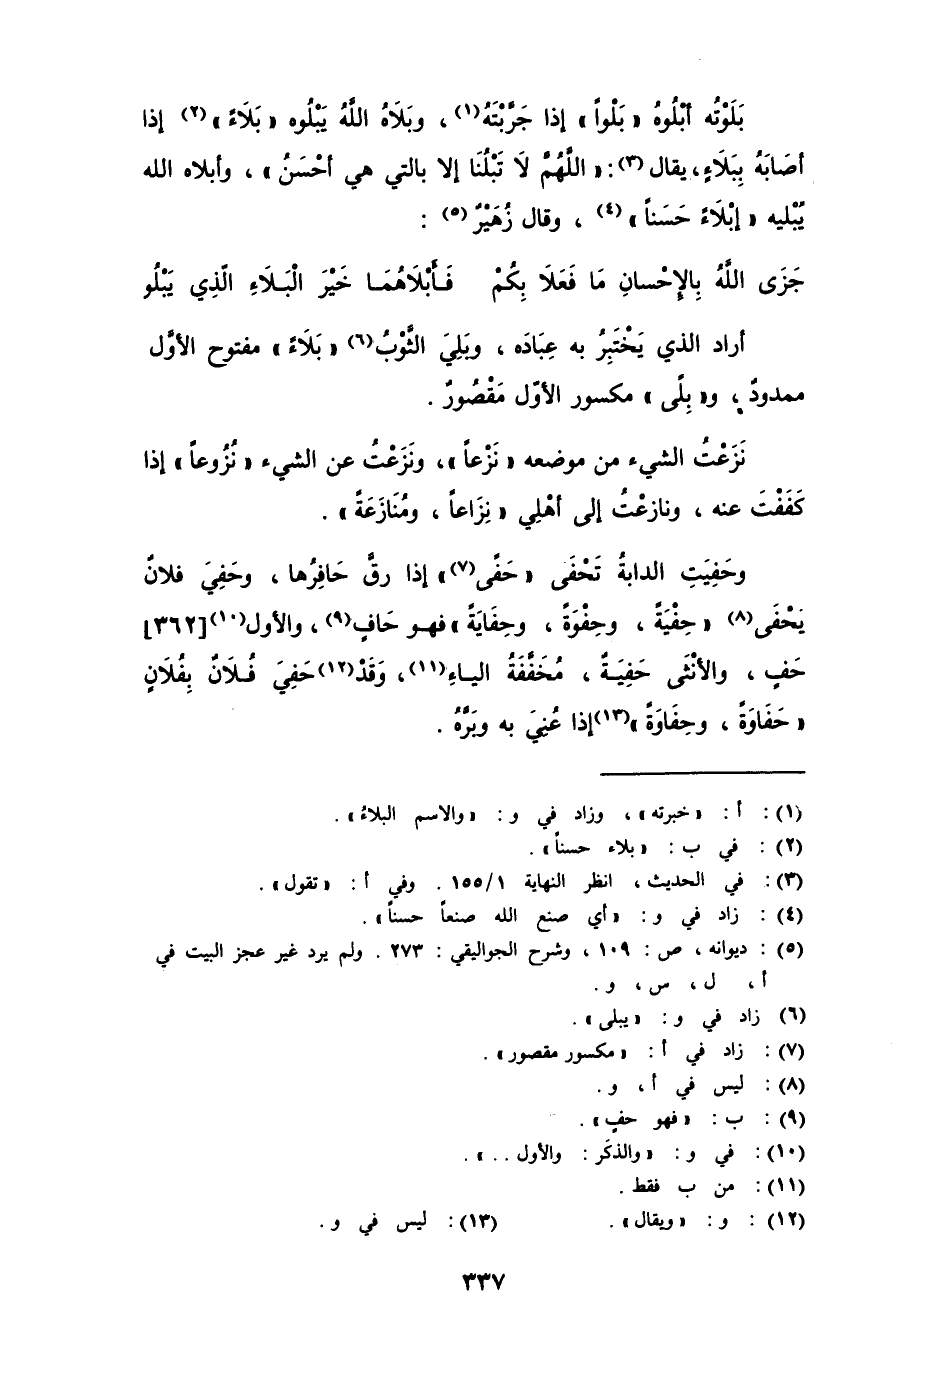 بَلَوْتُه أبْلُوهُ « بَلْواً » إذا جَرَّبْتَهُ(١) ، وبَلَاهُ اللَّهُ يَبْلُوه « بَلَاءً »(٢) إذا
أصَابَهُ بِبَلَاءٍ، يقال(٣): « اللَّهُمَّ لَا تَبْلُنَا إلا بالتي هي أحْسَنُ » ، وأبلاه الله
يُبْليه « إبْلَاءً حَسَناً »(٤) ، وقال زُهَيْرٌ(٥) :
جَزَى اللَّهُ بِالإِحْسانِ مَا فَعَلَا بِكُمْ فَأَبْلَاهُمَا خَيْرَ الْبَلَاءِ الَّذِي يَبْلُو
أراد الذي يَخْتَبِرُ به عِبَادَه ، وبَلِيَ الثَّوْبُ(٦) « بَلَاءً » مفتوح الأوَّل
ممدودٌ ، و« بِلًى » مكسور الأوّل مَقْصُورٌ .
نَزَعْتُ الشيء من موضعه « نَزْعاً »، ونَزَعْتُ عن الشيء « نُزُوعاً » إذا
كَفَفْتَ عنه ، ونازعْتُ إلى أهْلِي « نِزَاعاً ، ومُنَازَعَةً » .
وحَفِيَتِ الدابةُ تَحْفَى « حَفًى(٧)» إذا رقَّ حَافِرُها ، وحَفِيَ فلانٌ
يَحْفَى(٨) « حِفْيَةً ، وحِفْوَةً ، وحِفَايَةً » فهو حَافٍ(٩) ، والأول(١٠) [٣٦٢]
حَفٍ ، والأنْثَى حَفِيَةٌ ، مُخَفَّفَةُ الياءِ(١١)، وَقَدْ(١٢) حَفِيَ فُلَانٌ بِفُلَانٍ
« حَفَاوَةً ، وحِفَاوَةً »(١٣) إذا عُنِيَ به وبَرَّهُ .
(١): أ: «خبرته»، وزاد في و: «والاسم البلاءُ» .
(٢) : في ب: «بلاء حسناً» .
(٣): في الحديث، انظر النهاية ١٥٥/١ . وفي أ: «تقول» .
(٤) : زاد في و: «أي صنع الله صنعاً حسناً» .
(٥) : ديوانه، ص: ١٠٩ ، وشرح الجواليقي: ٢٧٣ . ولم يرد غير عجز البيت في
أ، ل، س، و .
(٦) زاد في و: «يبلى» .
(٧) : زاد في أ: «مكسور مقصور» .
(٨) : ليس في أ، و .
(٩) : ب: «فهو حفٍ» .
(١٠): في و: «والذكَر: والأول ..» .
(١١): من ب فقط .
(١٢) : و: «ويقال» . (١٣): ليس في و .
٣٣٧